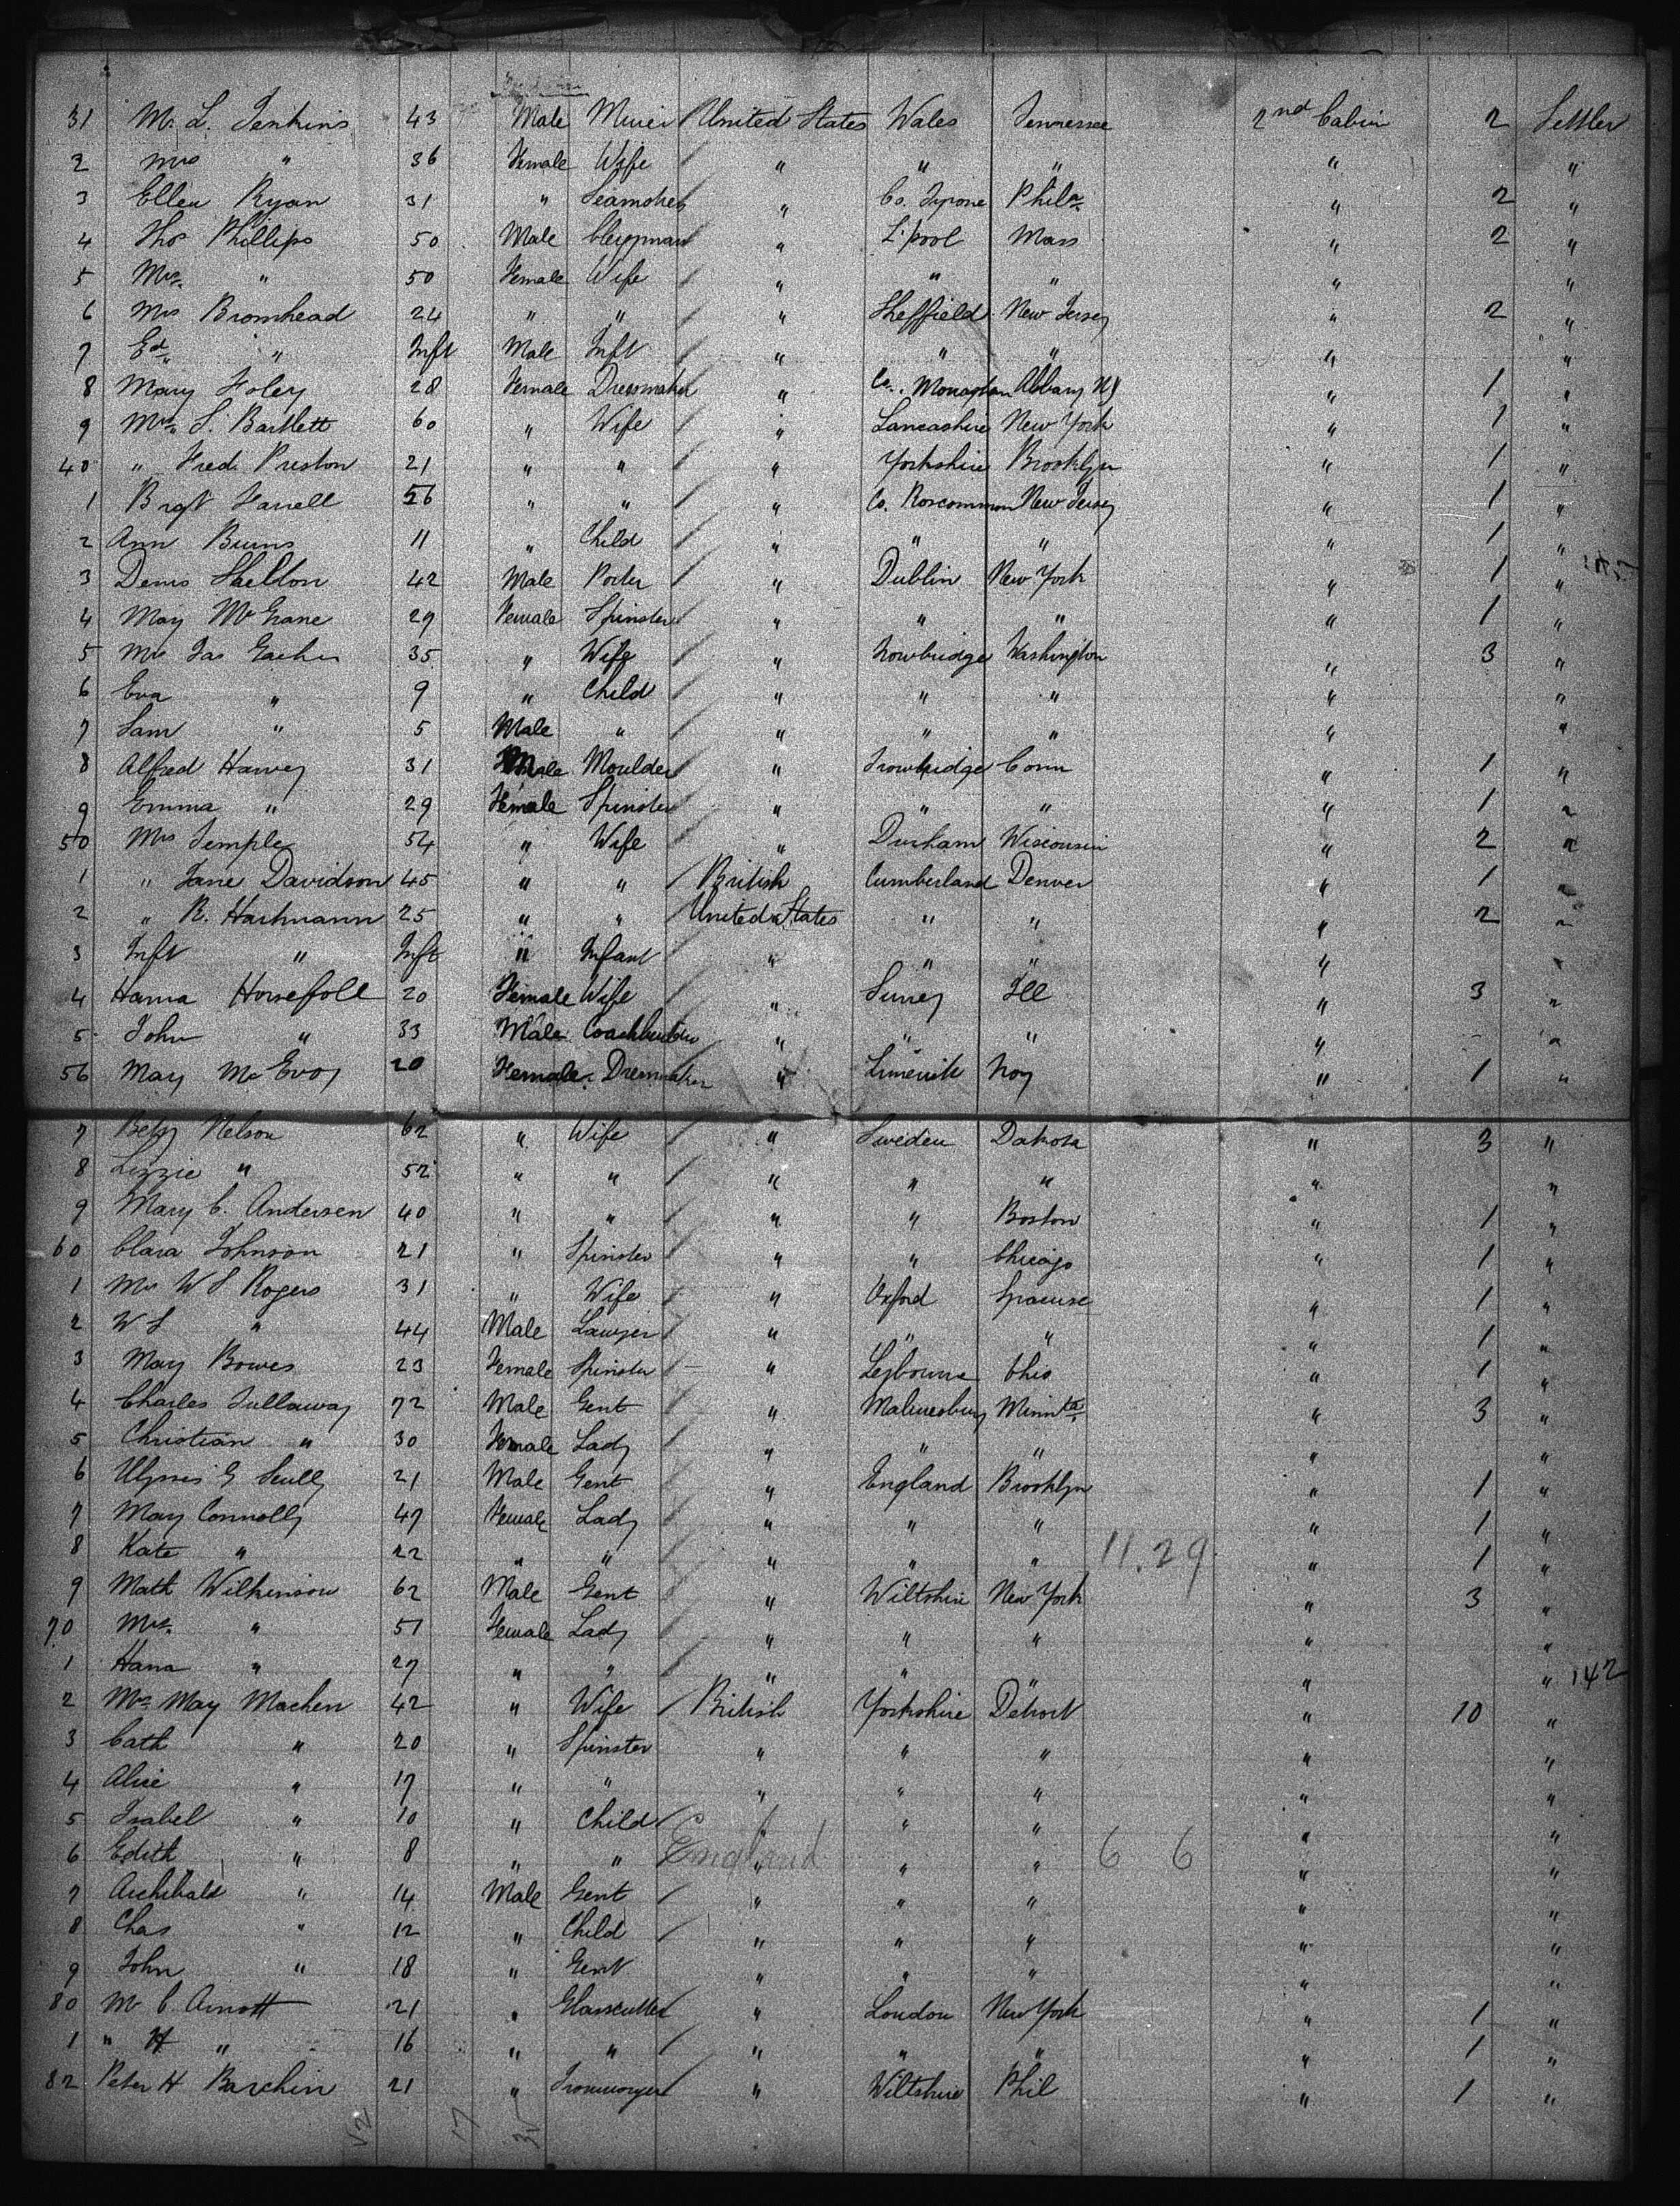 31 Mr. L. Jenkins 43 Male Miner United States Wales Tennessee 2nd Cabin 2 Settler
2 Mrs " 36 Female Wife " " " " "
3 Ellen Ryan 31 " " Co. Tyrone Phila " 2 "
4 Thos Phillips 50 Male Clergyman " L'pool Mass " 2 "
5 Mrs. " 50 Female Wife " " " " "
6 Mrs Bromhead 24 " " " Sheffield New Jersey " 2 "
7 Ed " Inft Male Inft " " " " "
8 Mary Foley 28 Female Dressmaker " Co. Monaghan Albany NY " 1 "
9 Mrs. S. Bartlett 60 " Wife " Lancashire New York " 1 "
40 " Fred. Preston 21 " " " Yorkshire Brooklyn " 1 "
1 Brgt Farrell 56 " " " Co. Roscommon New Jersey " 1 "
2 Ann Burns 11 " Child " " " " 1 "
3 Denis 42 Male Porter " Dublin New York " 1 "
4 May McGrane 29 Female Spinster " " " " 1 "
5 Mrs Jas 35 " Wife " Trowbridge Washington " 3 "
6 Eva " 9 " Child " " " " "
7 Sam " 5 Male " " " " " "
8 Alfred Harvey 31 Male Moulder " Trowbridge Conn " 1 "
9 Emma " 29 Female Spinster " " " " 1 "
50 Mrs Temple 54 " Wife " Durham Wisconsin " 2 "
1 " Jane Davidson 45 " " British Cumberland Denver " 1 "
2 " R. Hartmann 25 " " United States " " " 2 "
3 Inft " Inft " Infant " " " " "
4 Hanna Horsefall 20 Female Wife " Surrey Ill " 3 "
5 John " 33 Male Coachbuilder " " " " - "
56 May McEvoy 20 Female Dressmaker " Limerick " 1 "
7 Betsy Nelson 62 " Wife " Sweden Dakota " 3 "
8 Lizzie " 52 " " " " " " "
9 Mary C. Andersen 40 " " " " Boston " 1 "
60 Clara Johnson 21 " Spinster " " Chicago " 1 "
1 Mrs W S Rogers 31 " Wife " Oxford Syracuse " 1 "
2 W S " 44 Male Lawyer " " " " 1 "
3 May Bowes 23 Female Spinster " Ohio " 1 "
4 Charles Tullaway 72 Male Gent " Malmesbury Minnta " 3 "
5 Christian " 30 Female Lady " " " " "
6 Ulysses G Scully 21 Male Gent " England Brooklyn " 1 "
7 May Connolly 47 Female Lady " " " " 1 "
8 Kate " 22 " " " " " 11.29 " 1 "
9 Math Wilkinson 62 Male Gent " Wiltshire New York " 3 "
70 Mrs. " 51 Female Lady " " " " "
1 Hana " 27 " " " " " " " 142
2 Mrs May Machen 42 " Wife British Yorkshire Detroit " 10 "
3 Cath " 20 " Spinster " " " " "
4 Alice " 17 " " " " " " "
5 Isabel " 10 " Child " " " " "
6 Edith " 8 " " England " " " 6 6 " "
7 Archibald " 14 Male Gent " " " " "
8 Chas " 12 " Child " " " " "
9 John " 18 " Gent " " " " "
80 Mr C. Arnott 21 " Glasscutter " London New York " 1 "
1 " H " 16 " " " " " " 1 "
82 Peter H Barchin 21 " Ironmonger " Wiltshire Phil " 1 "